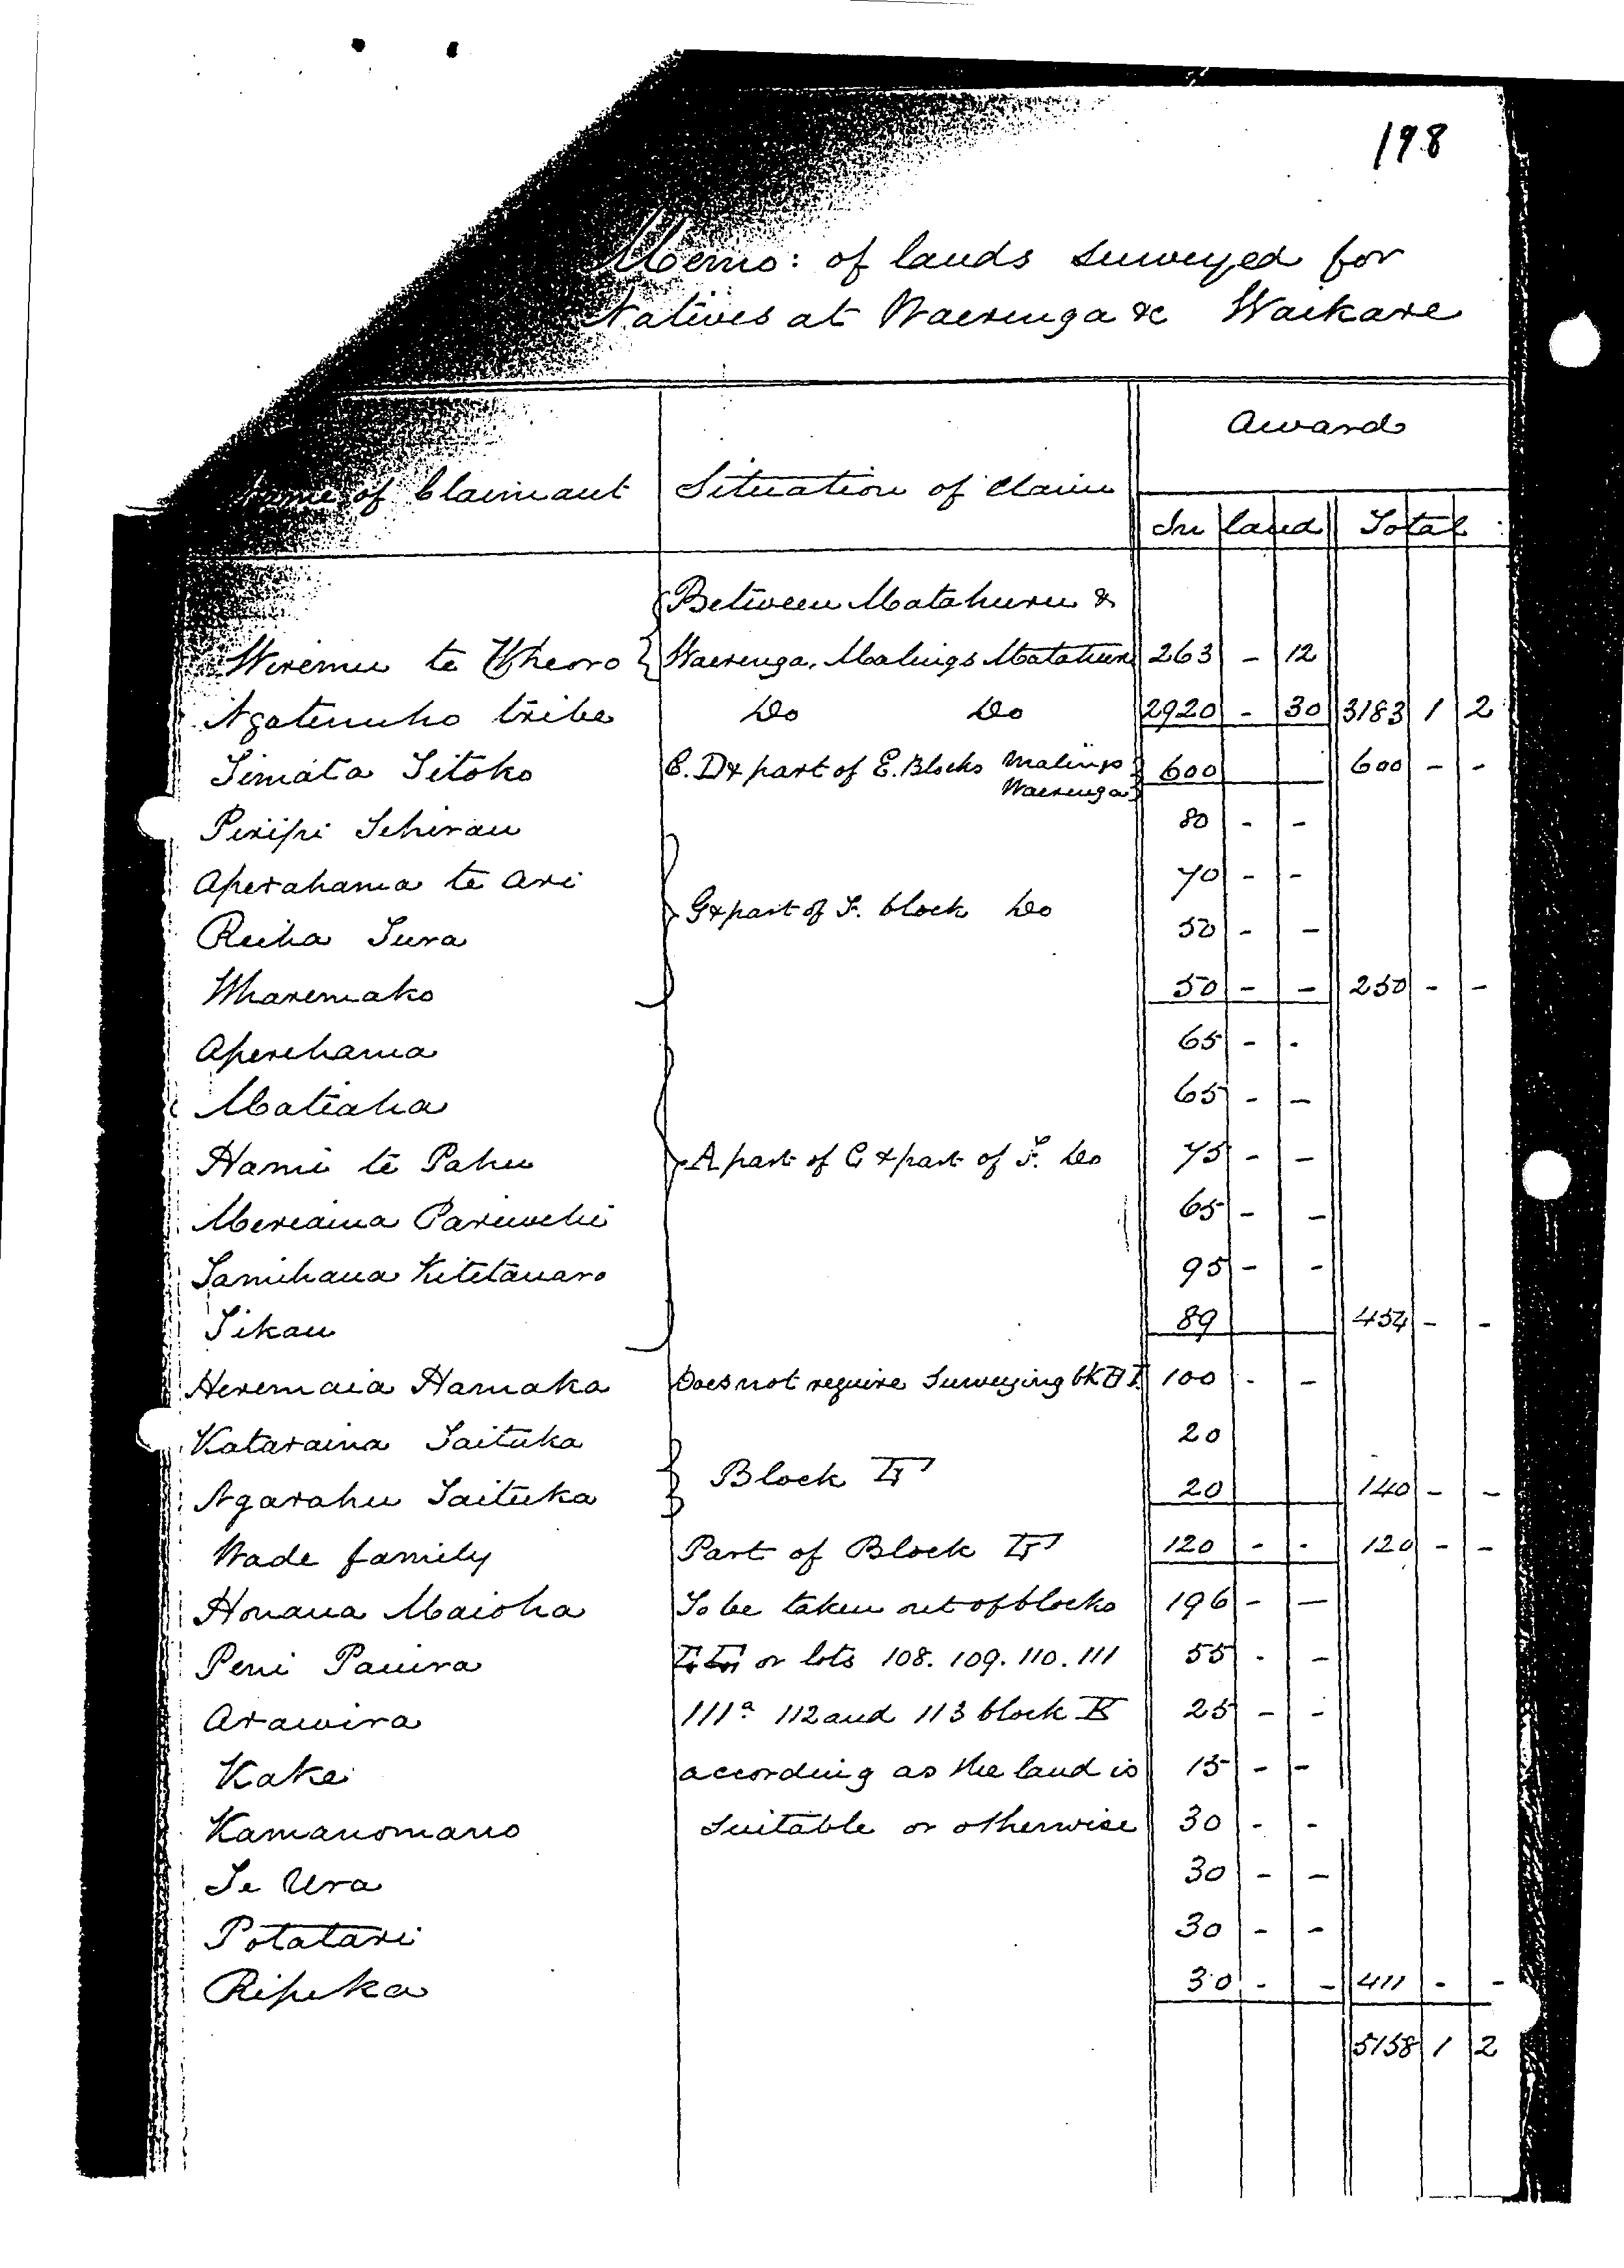 198
Memo: of lands surveyed for
Natives at Waerenga & Waikare
Name of Claimant Situation of Claim Award
In land Total
Between Matahuru &
Wiremu te Wheoro Waerenga. Malings Matahuru 263 - 12
Ngatenuho tribe Do Do 2920 - 30 3183 1 2
Timata Titoko C. D & part of E. Blocks Malings 600 600 - -
Waerenga
Piripi Tehirau 80 - -
Aperahama te Ari 70 - -
G & part of F. block Do
Reiha Tura 50 - -
Wharemako 50 - - 250 - -
Aperehama 65 - -
Matiaha 65 - -
Hami te Pahu A part of G & part of F. Do 75 - -
Mereaina Pariwehi 65 - -
Tamihana Kitetanaro 95 - -
Tikau 89 454 - -
Heremaia Hamaka Does not require Surveying bk 100 - -
Kataraina Taituka 20
Block VI
Ngarahu Taituka 20 140 - -
Wade family Part of Block VI 120 - - 120 - -
Honana Maioha To be taken out of blocks 196 - -
Peni Pauira or lots 108. 109. 110. 111 55 - -
Arawira 111a 112 and 113 block IX 25 - -
Kake according as the land is 15 - -
Kamanomano suitable or otherwise 30 - -
Te Ura 30 - -
Potatari 30 - -
Ripeka 30 - - 411 - -
5158 1 2